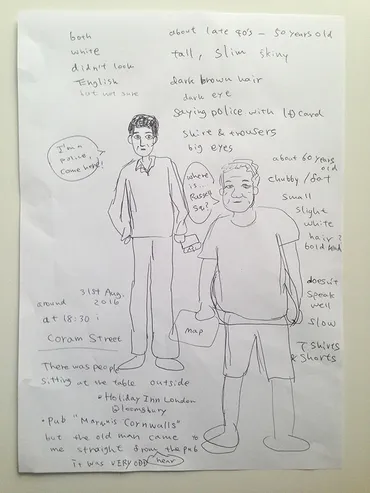 both
white
didn't look
English
but not sure
about late 40's - 50 years old
tall, slim skiny
dark brown hair
dark eye
saying police with ID card
shire & trousers
big eyes
I'm a
police,
come here!
where
is...
Russell
Sq!?
about 60 years
old
chubby / fat
small
slight
white
hair?
bold
doesn't
speak
well
slow
T shires
& shorts
map
31st Aug,
2016
around
at 18:30
Coram Street
There was people
sitting at the table outside
• Holiday Inn London
Bloomsbury
• Pub "Marquis Cornwalls"
but the old man came to
me straight from the pub
it was VERY ODD
near